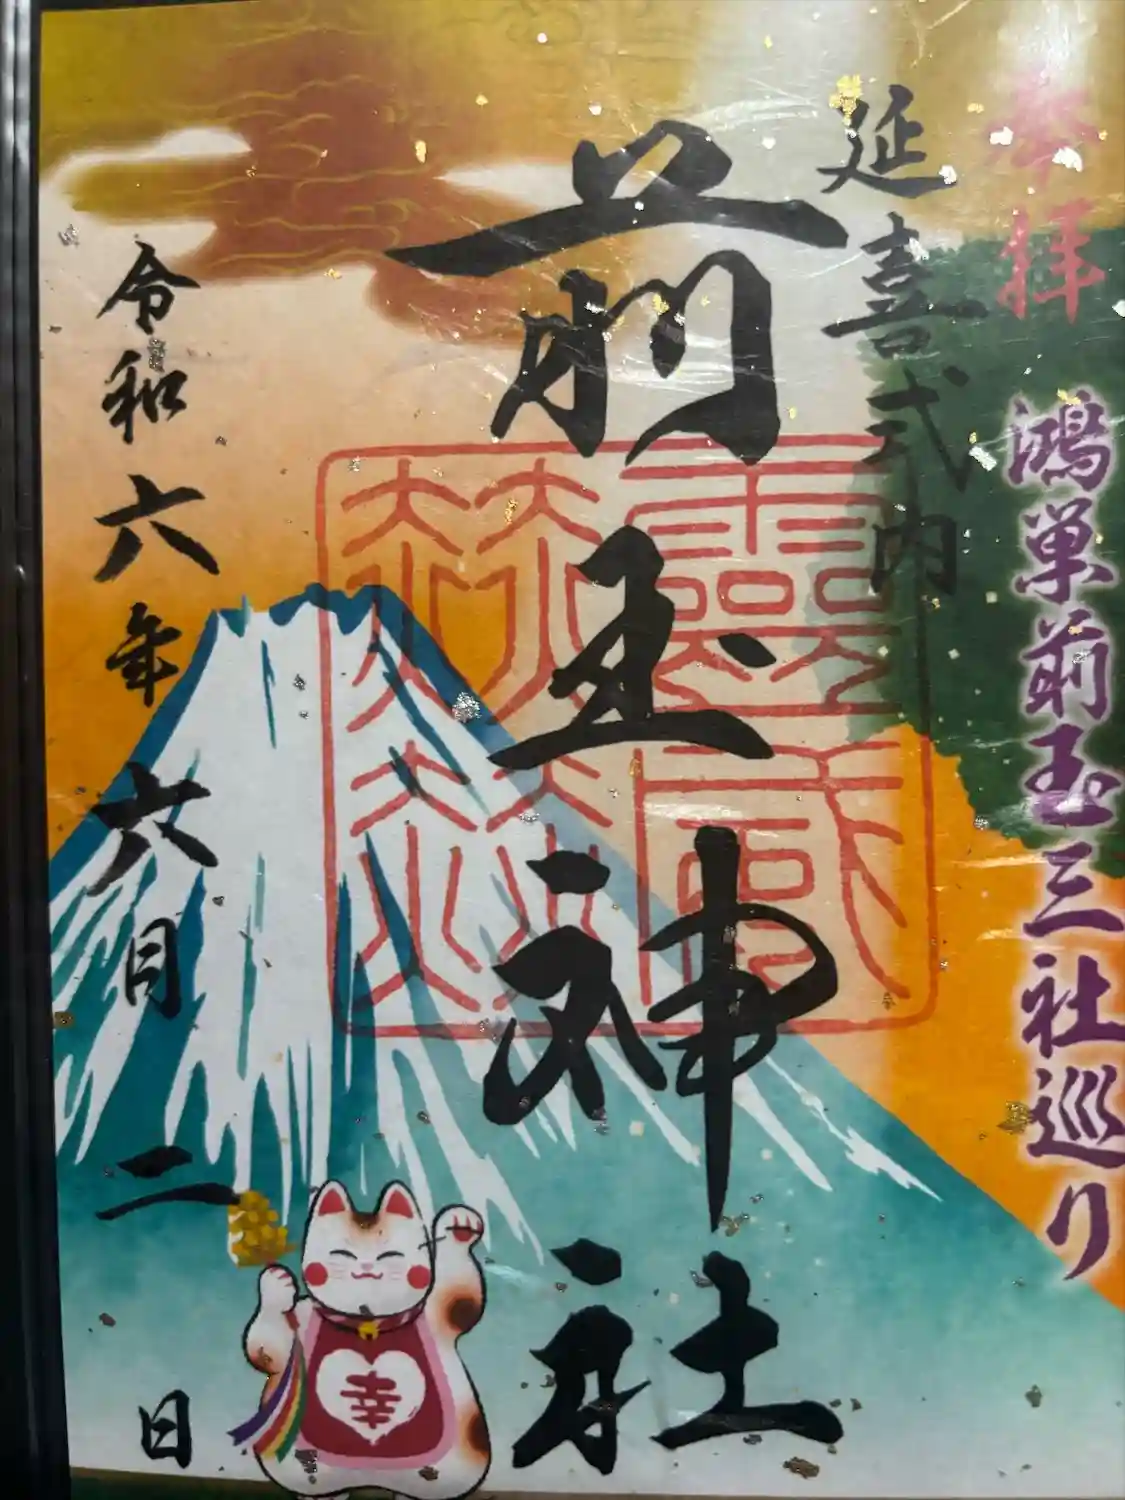 奉拝
鴻巣前玉三社巡り
延喜式内
前玉神社
令和六年六月二日
幸